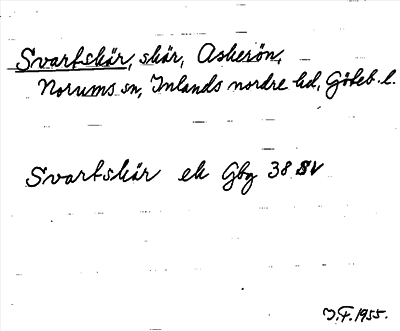 Svartskär, skär, Askerön,
Norums sn, Inlands nordre hd, Göteb. l.
Svartskär ek Gbg 38 SV
I.F. 1955.